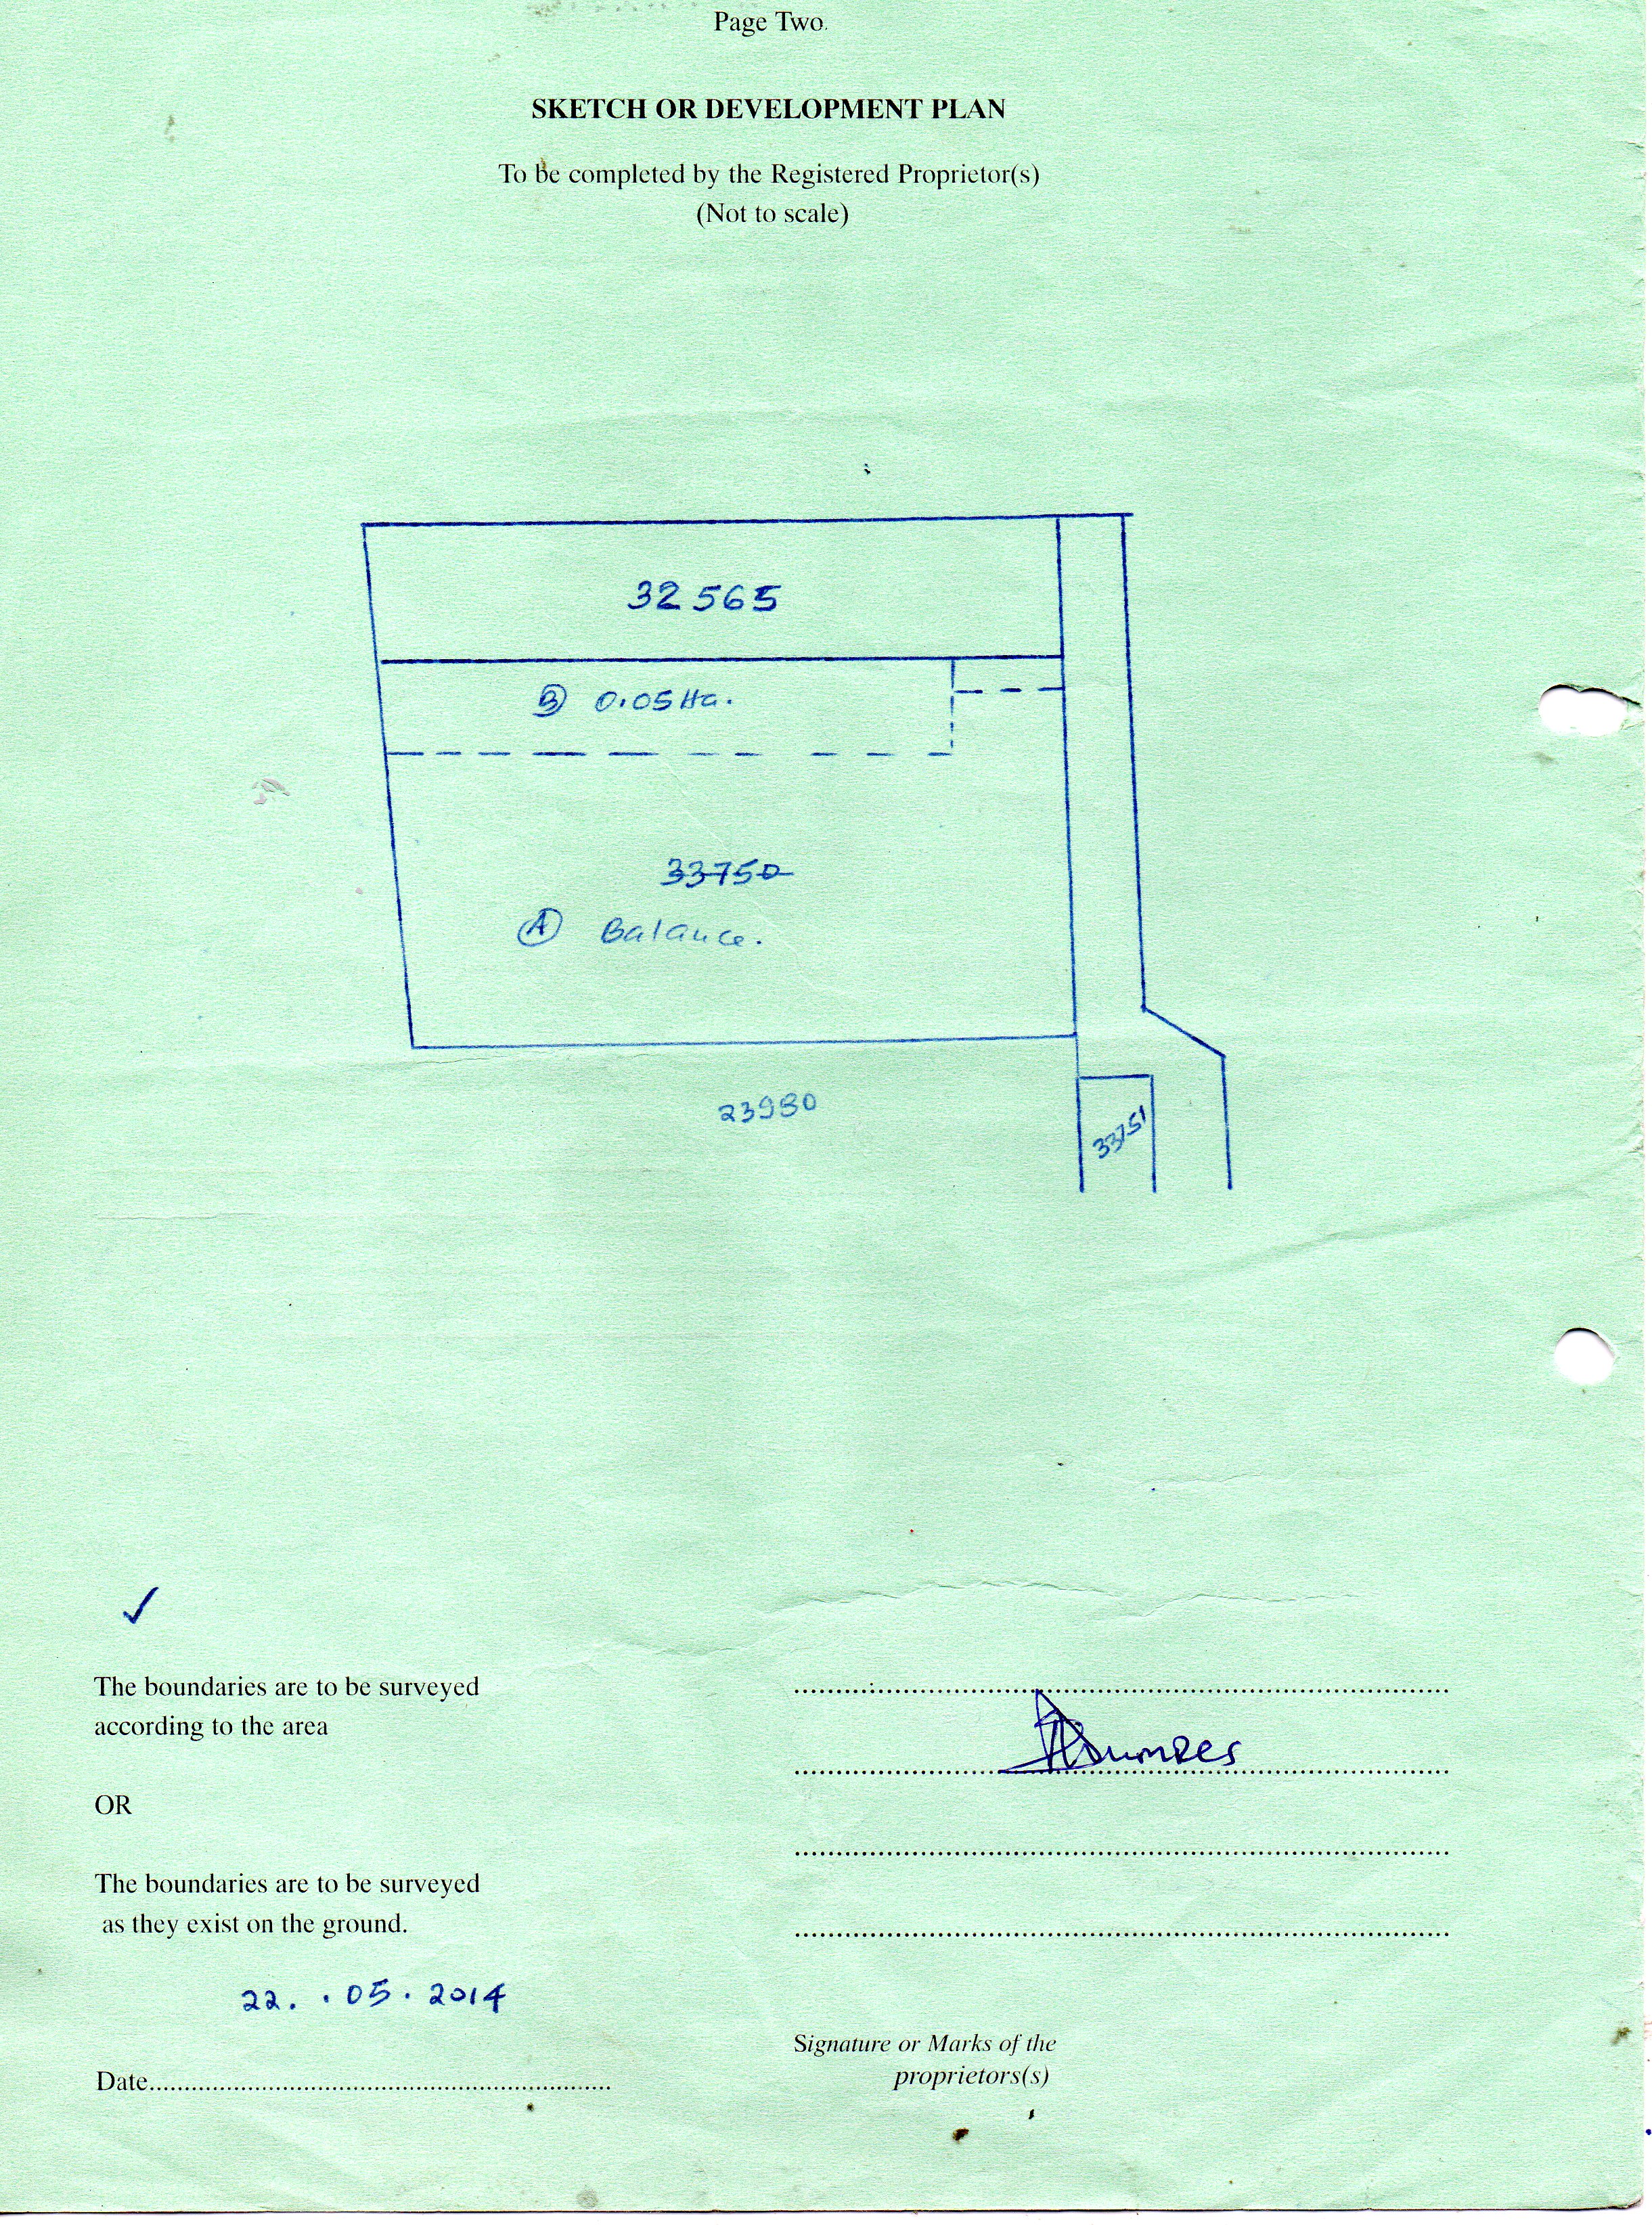 Page Two.
SKETCH OR DEVELOPMENT PLAN
To be completed by the Registered Proprietor(s)
(Not to scale)
32565
B 0.05 Ha.
33750
A Balance.
23980
33751
The boundaries are to be surveyed
according to the area
OR
The boundaries are to be surveyed
as they exist on the ground.
22. . 05 . 2014
Signature or Marks of the
Date
proprietors(s)